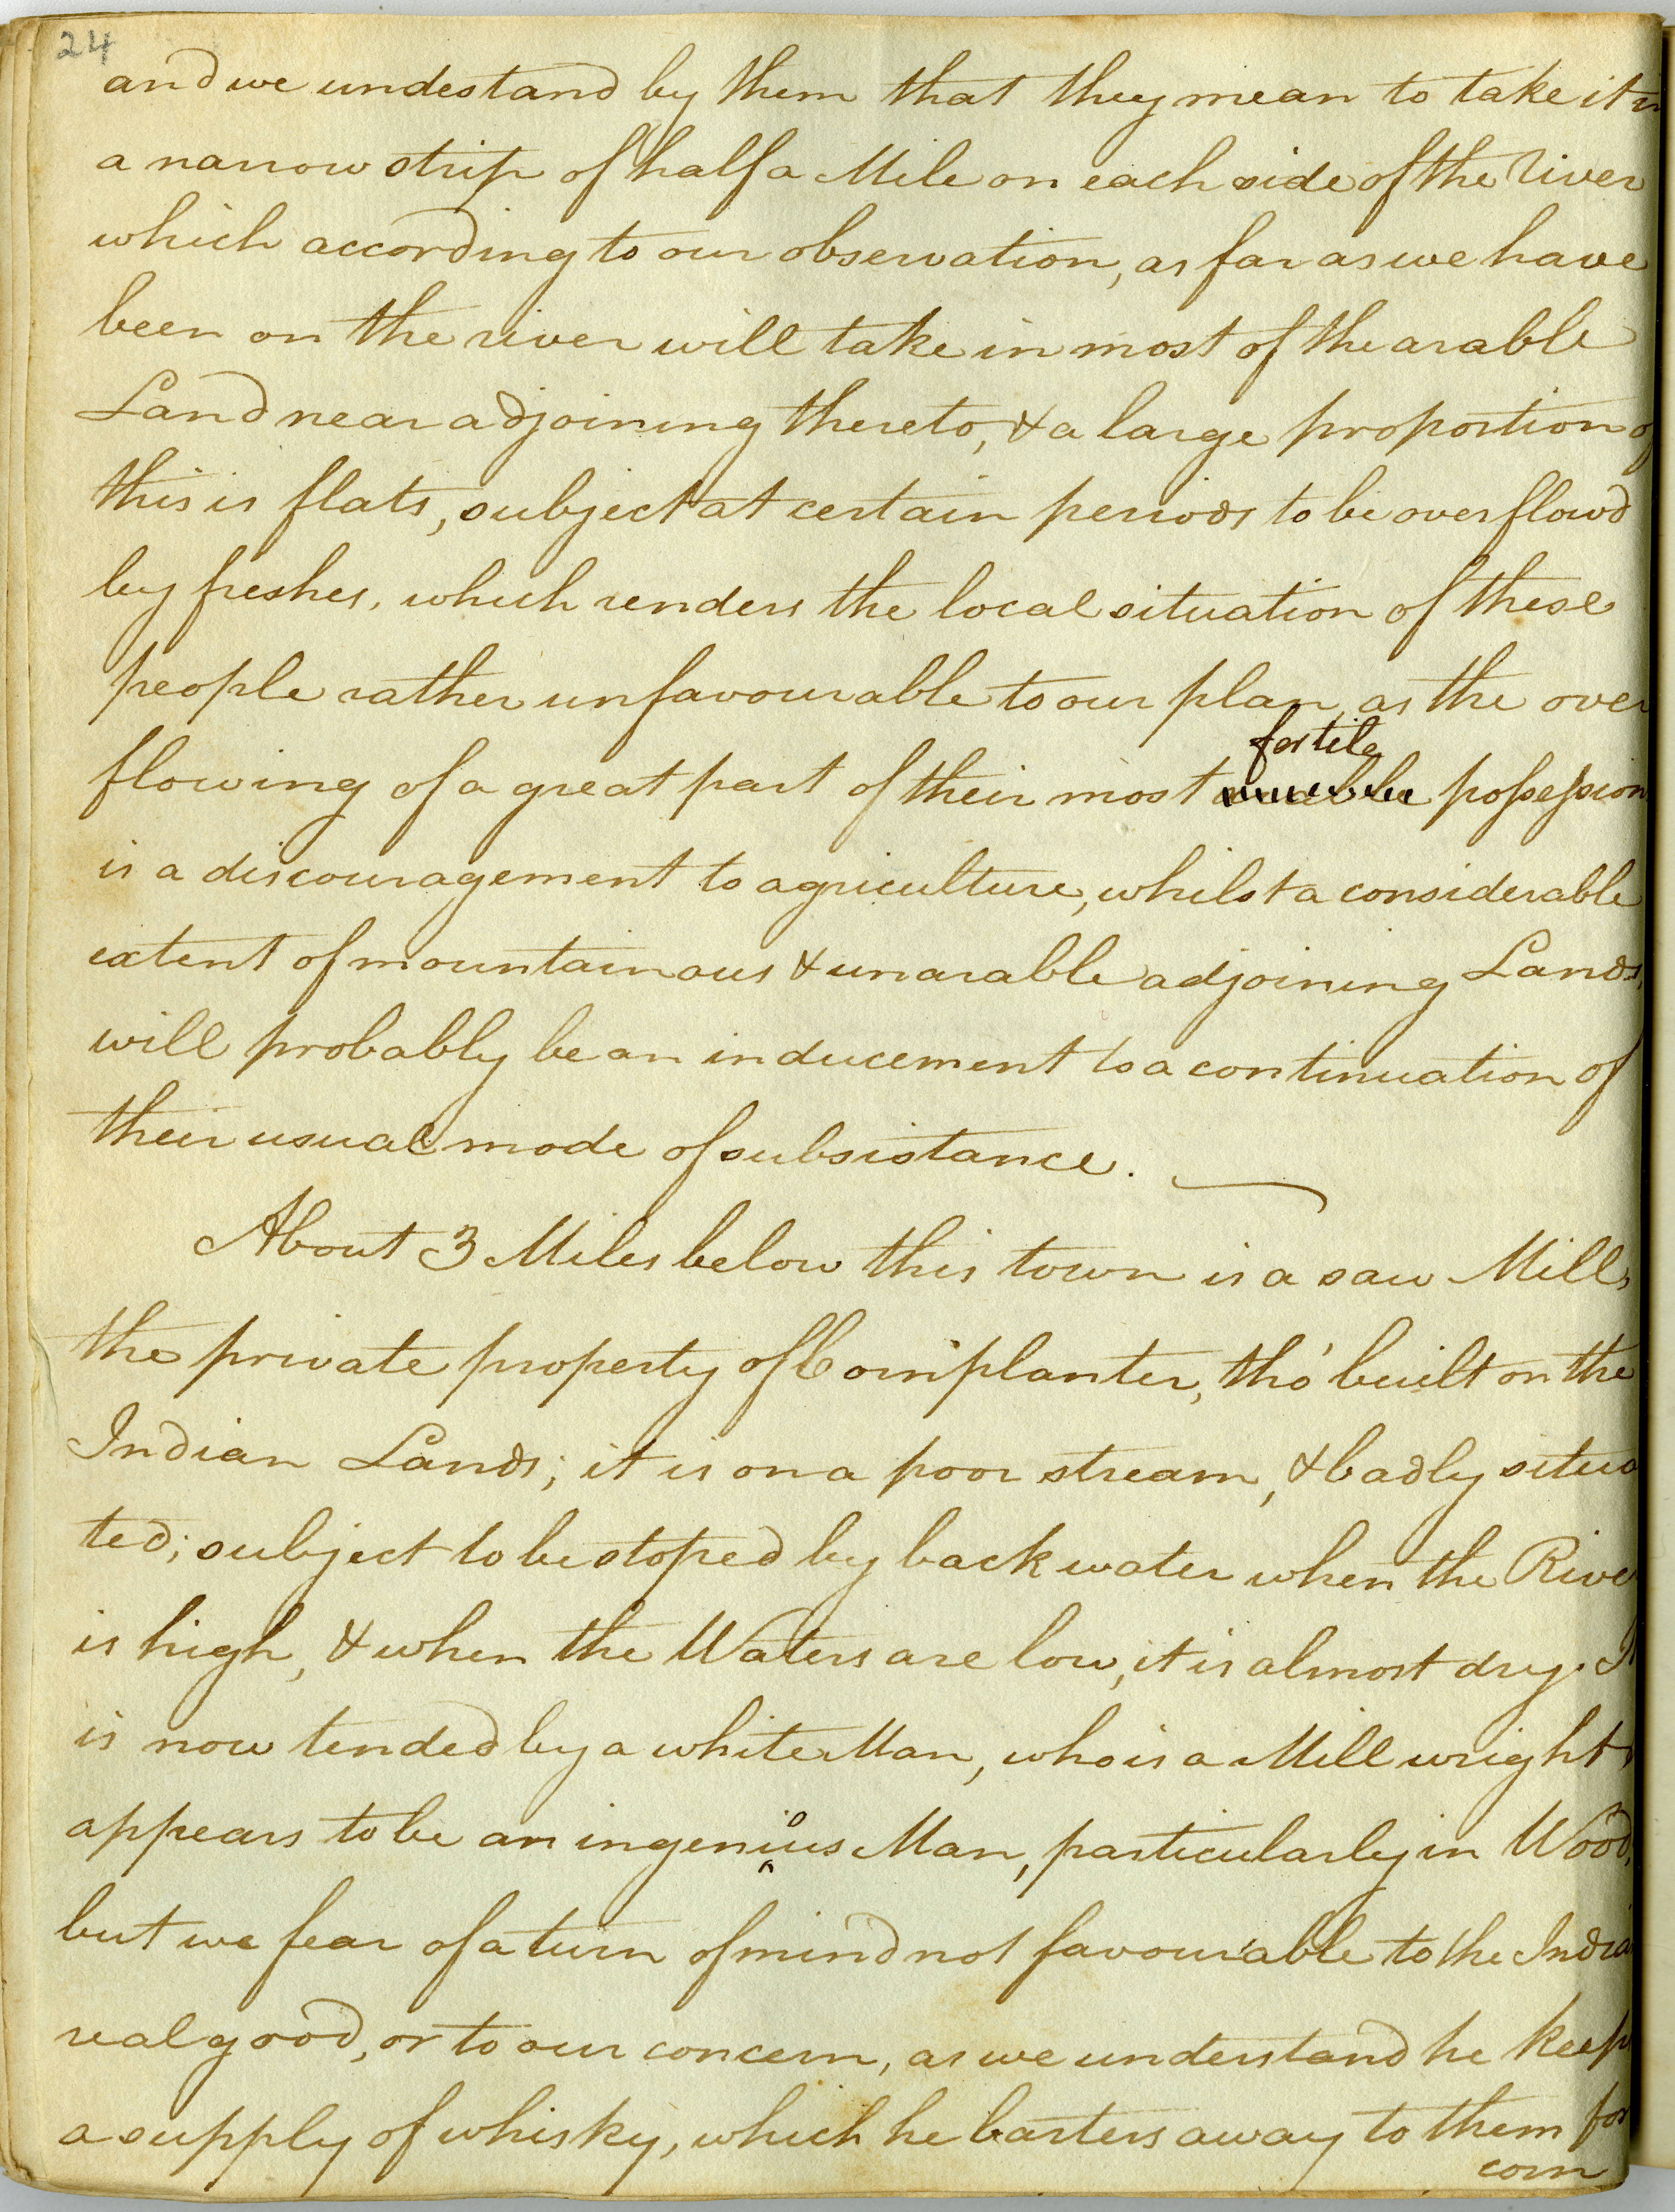 24
and we undestand by them that they mean to take it in
a narrow strip of half a Mile on each side of the River
which according to our observation, as far as we have
been on the river will take in most of the arable
Land near adjoining thereto, & a large proportion of
this is flats, subject at certain periods to be overflow'd
by freshes, which renders the local situation of these
people rather unfavourable to our plan, as the over
fertile
flowing of a great part of their most possession
is a discouragement to agriculture, whilst a considerable
extent of mountainous & unarable adjoining Lands,
will probably be an inducement to a continuation of
their usual mode of subsistance.
About 3 Miles below this town is a saw Mill,
the private property of Cornplanter, tho' built on the
Indian Lands; it is on a poor stream, & badly situa
ted; subject to be stoped by back water when the River
is high, & when the Waters are low, it is almost dry. It
is now tended by a white Man, who is a Mill wright &
appears to be an ingenious Man, particularly in Wood,
but we fear of a turn of mind not favourable to the Indian
real good, or to our concern, as we understand he keeps
a supply of whisky, which he barters away to them for
corn